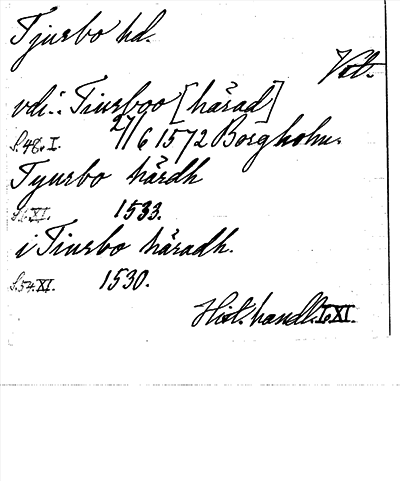 Tjurbo hd.
Vot.
vdi: Tiurboo [härad]
S.48. I. 27/6 1572 Borgholm.
Tyurbo härdh
XI. 1533.
i Tiurbo häradh.
S.54. XI. 1530.
Hist. handl. I. XI.